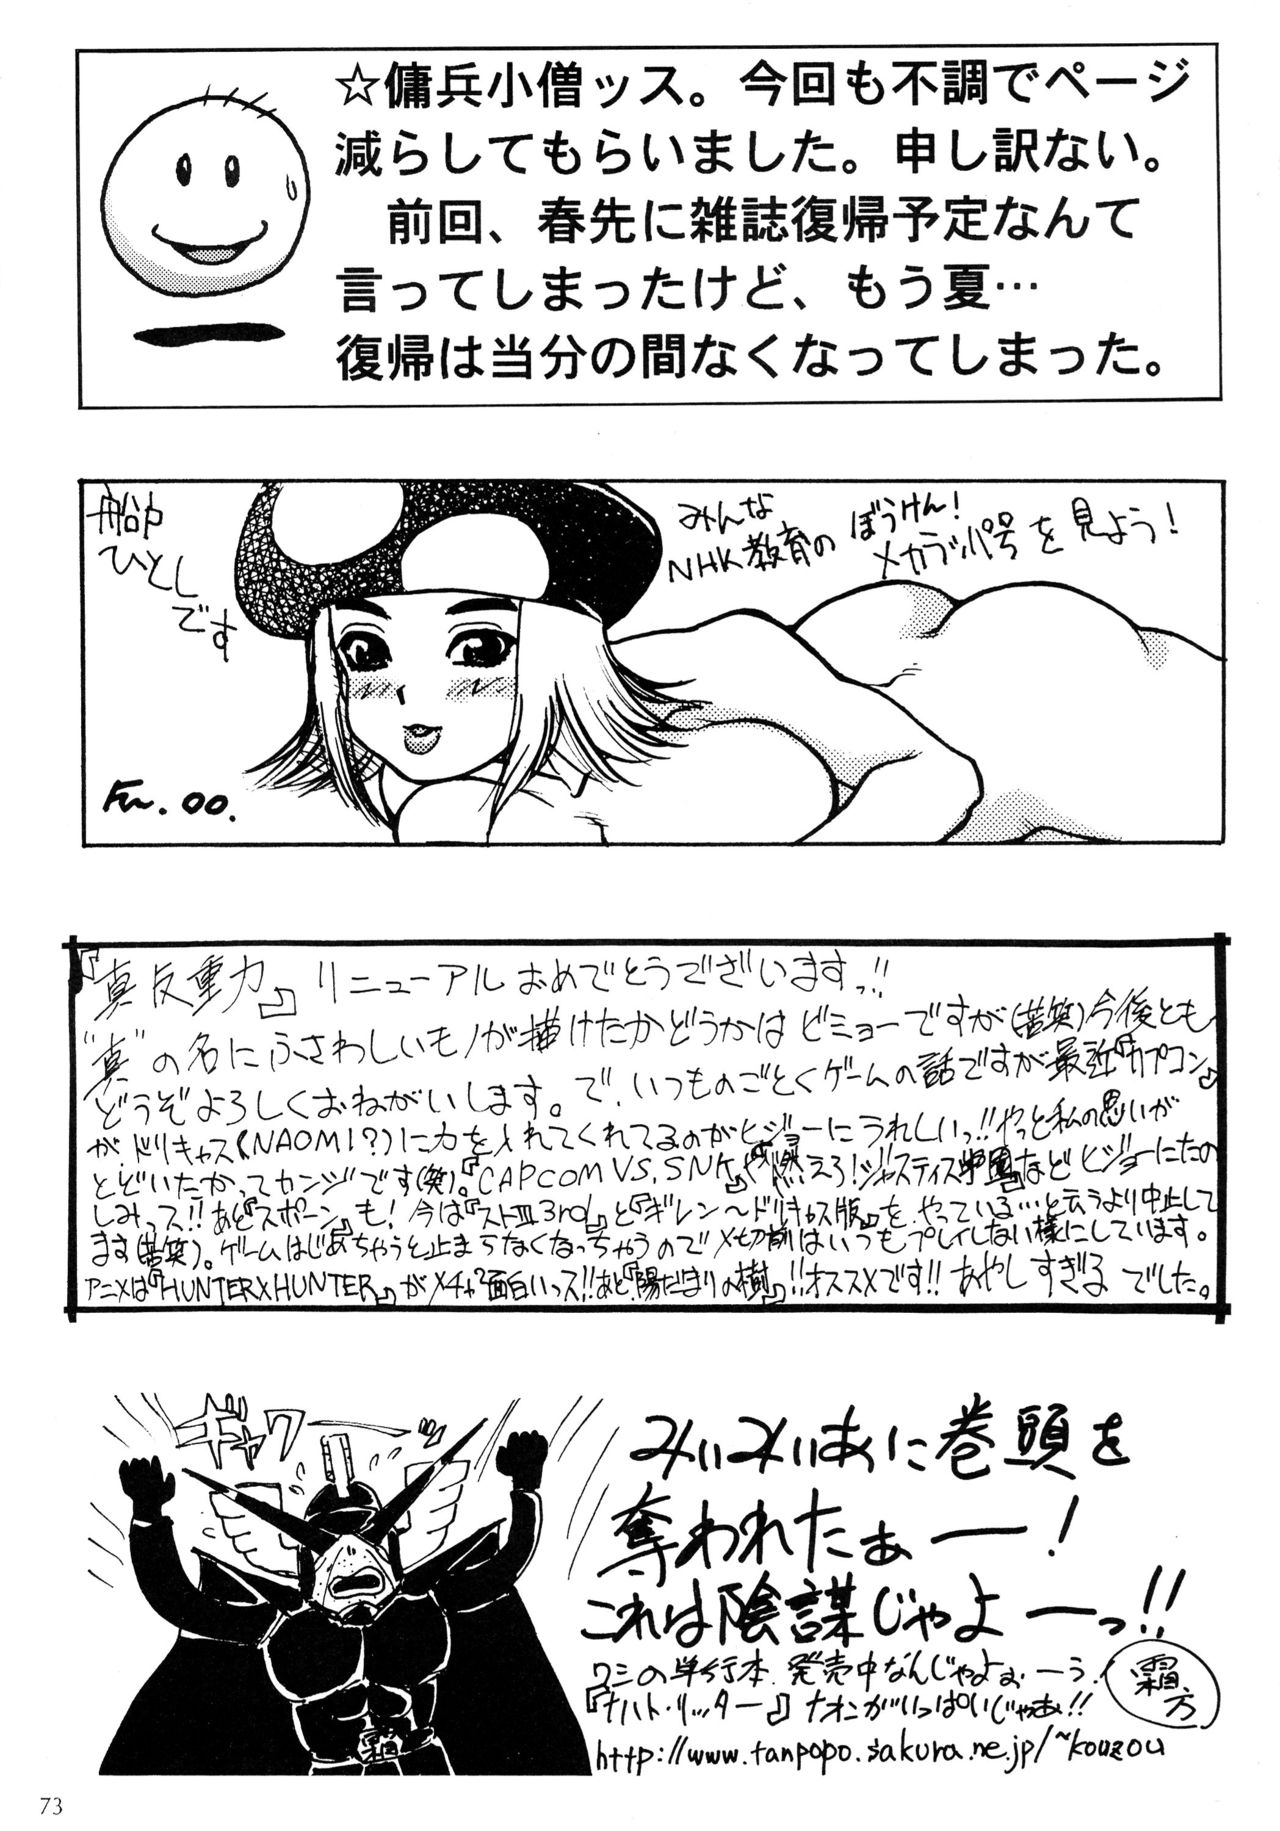 ☆傭兵小僧ッス。今回も不調でページ
減らしてもらいました。申し訳ない。
前回、春先に雑誌復帰予定なんて
言ってしまったけど、もう夏…
復帰は当分の間なくなってしまった。
船中
ひとし
です
みんな
NHK教育の ぼうけん!
メカラッパ号を見よう!
Fu. 00.
『真反重力』リニューアルおめでとうでざいますっ!!
"真"の名にふさわしいモノが描けたかどうかはビミョーですが(苦笑)今後とも
どうぞよろしくおねがいします。で、いつものごとくゲームの話ですが最近『カプコン』
がドリキャス(NAOMI?)に力を入れてくれてるのがヒジョーにうれしいっ!!やっと私の思いが
とどいたかってカンジです(笑)。『CAPCOM VS. SNK』や『燃えろ!ジャスティス学園』などヒジョーにたの
しみっス!!あと『スポーン』も!今は『ストIII 3rd』と『ギレン〜ドリキャス版』をやっている…と云うより中止して
ます(苦笑)。ゲームはじめちゃうと止まらなくなっちゃうので〆切前はいつもプレイしない様にしています。
アニメは『HUNTER×HUNTER』がメチャ面白いっス!!あと『陽だまりの樹』!!オススメです!! あやしすぎる でした。
ギャワーーッ
霜
みぃみぃあに巻頭を
奪われたぁー!
これは陰謀じゃよーっ!!
ワシの単行本、発売中なんじゃよぉーう!
『ナハト・リッター』ナオンがいっぱいじゃあ!!
霜方
http://www.tanpopo.sakura.ne.jp/~kouzou
73